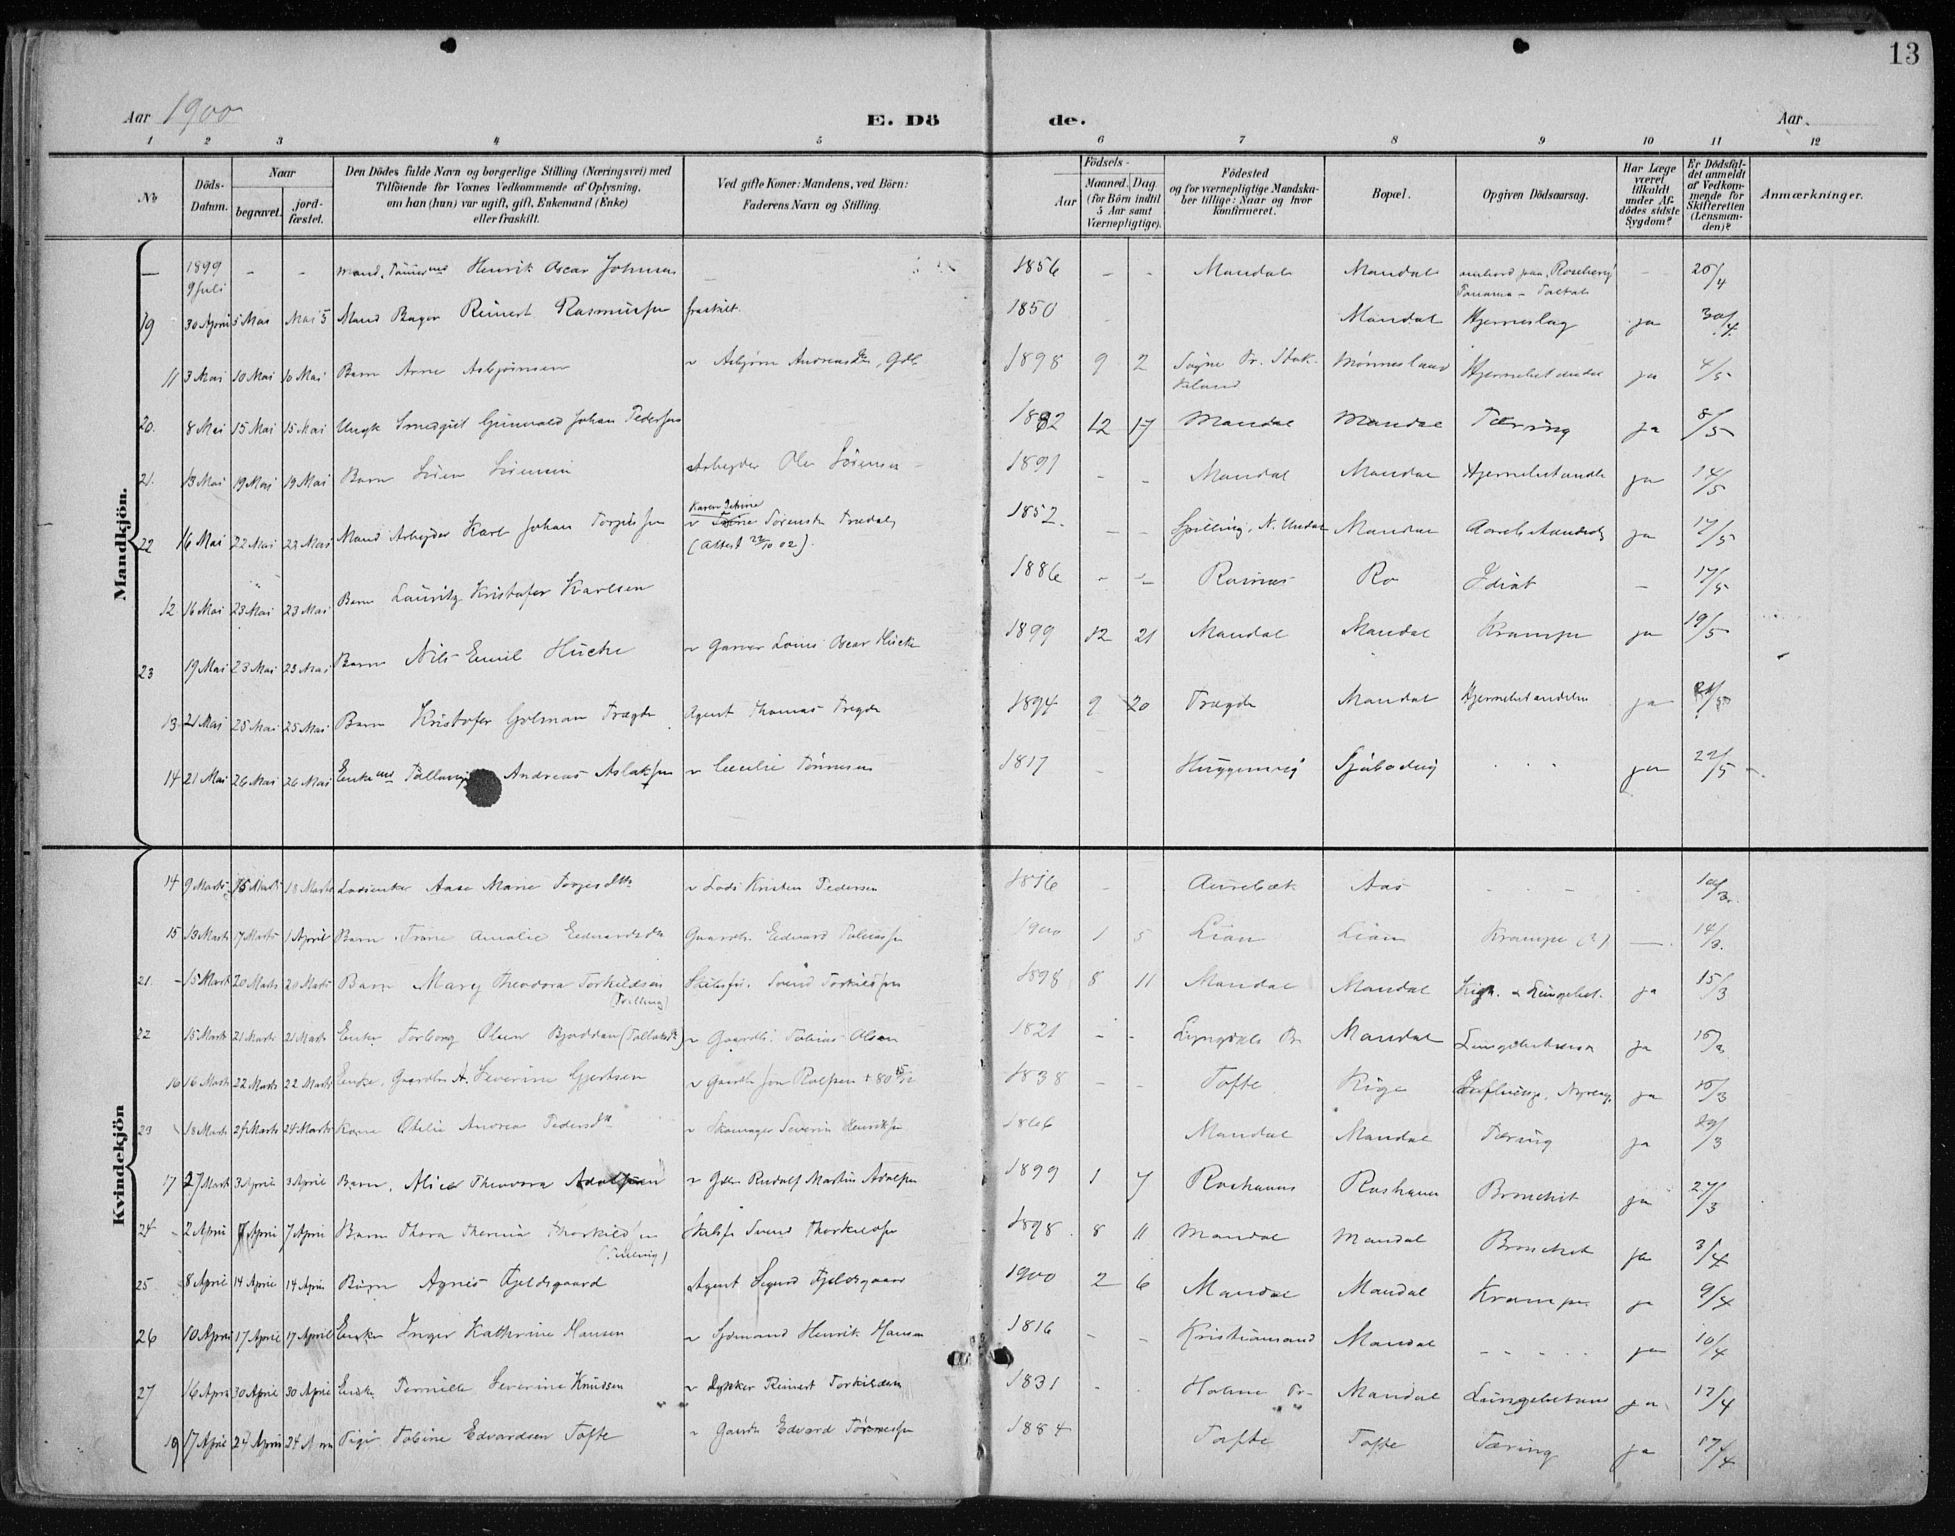 13
Aar 1900
E. Dö de.
Aar
1 2 3 4 5 6 7 8 9 10 11 12
No
Döds-Datum.
Naar
begravet.
jord-fæstet.
Den Dödes fulde Navn og borgerlige Stilling (Næringsvei) med
Tilföiende for Voxnes Vedkommende af Oplysning,
om han (hun) var ugift, gift, Enkemand (Enke)
eller fraskilt.
Ved gifte Koner: Mandens, ved Börn:
Faderens Navn og Stilling.
Födsels-
Aar
Maaned. Dag
(for Börn indtil
5 Aar samt
Værnepligtige).
Födested
og for værnepligtige Mandska-
ber tillige: Naar og hvor
konfirmeret.
Bopæl.
Opgiven Dödsaarsag.
Har Læge
været
tilkaldt
under Af-
dödes sidste
Sygdom?
Er Dödsfal-
det anmeldt
af Vedkom-
mende for
Skifteretten
(Lensman-
den)?
Anmærkninger.
Mandkjön.
— 1899 9 Juli - - Mand, Henrik Oscar Johnsen — 1856 - - Mandal Mandal ombord paa "Rosebery" Panama - Taltal - 25/4
19 30 April 5 Mai Mai 5 Mand Bager Reinert Rasmussen fraskilt. 1850 - Mandal Hjerneslag ja 30/4
11 3 Mai 10 Mai 10 Mai Barn Arne Asbjørnsen ~ Asbjørn Andreas 1898 9 2 Søgne Pr. Mønnesland Hjernebetændel ja 4/5
20. 8 Mai 15 Mai 15 Mai Ungk Smedgut Gunvald Johan Pedersen 1882 12 17 Mandal Mandal Tæring ja 8/5
21. 13 Mai 19 Mai 19 Mai Barn Sören Sörensen Arbeyder Ole Sörensen 1891 - - Mandal Mandal Hjernebetændl ja 14/5
22 16 Mai 22 Mai 22 Mai Mand Arbeyder Karl Johan Torjusen Karen Jebine ~ Sørensdtr (Attest 22/10 02). 1852. - - Spilling, N. Undal Mandal ja 17/5
12 16 Mai 23 Mai 23 Mai Barn Lauritz Kristofer Karlsen 1886 - - Ro Idiot — 17/5
23 19 Mai 23 Mai 23 Mai Barn Nils Emil Hücke ~ Garver Louis Oscar Hücke 1899 12 21 Mandal Mandal Krampe ja 19/5
13 21 Mai 25 Mai 25 Mai Barn Kristofer Trægde Agent Thomas Tregde 1894 9 20 Trægde Mandal Hjernebetændelse ja 21/5
14 21 Mai 26 Mai 26 Mai Enkemd Andreas Aslaksen ~ Cecilie Tønnesen 1817 - ja 22/5
Kvindekjön
14 9 Marts 15 Marts 18 Marts Lodsenke Aase Marie Torjesdtr ~ Lods Kristen Pedersen 1816 - Aurebæk Aas - - - 10/3.
15 13 Marts 17 Marts 1 April Barn Trine Amalie Edvardsdtr Gaardbr. Edvard Tobiassen 1900 1 5 Lian Lian Krampe (?) — 14/3.
21. 15 Marts 20 Marts 20 Marts Barn Mary Theodora Torkildsen (Tvilling) Skibsf. Svend Torkildsen 1898 8 11 Mandal Mandal Kigh. & Lungebet. ja 15/3
22 15 Marts 21 Marts 21 Marts Enke Torborg Olsen (Tollaksdtr) ~ Gaardb. Tobias Olsen 1821 - - Lyngdals Pr Mandal Lungebetænd ja 16/3
16 16 Marts 22 Marts 22 Marts Enke, Gaardbr. A. Severine Gjertsen ~ Gaardb 1838 - - Tofte Rige Influensa, ja 16/3
23 18 Marts 24 Marts 24 Marts Kone Otelie Andrea Pedersdtr ~ Skomager Severin Henriksen 1866 Mandal Mandal Tæring ja 20/3
17 27 Marts 3 April 3 April Barn, Alice Theodora Adolfsen ~ Gdbr Rudolf Martin Adolfsen 1899 1 7 Roshavn Roshavn Bronchit ja 27/3
24 2 April 7 April 7 April Barn Thora Thomine Thorkildsen (Tvilling) Skibsf Svend Thorkildsen 1898 8 11 Mandal Mandal Bronchit ja 3/4
25 8 April 14 April 14 April Barn Agnes Fjeldsgaard Agent Sigurd Fjeldsgaard 1900 2 6 Mandal Mandal Krampe ja 9/4
26 10 April 17 April 17 April Enke Inger Kathrine Hansen ~ Sjømand Henrik Hansen 1816 - - Kristiansand Mandal - - - - ja 10/4
27 16 April 30 April 30 April Enke Pernille Severine Knudsen ~ Reinert Torkildsen 1831 - - Holme Pr. Mandal Lungebetænd ja. 17/4
19 17 April 24 April 24 April Pige Tobine Edvardsen Tofte ~ Gaardb Edvard Tönnessen 1884 Tofte Tofte Tæring ja 17/4